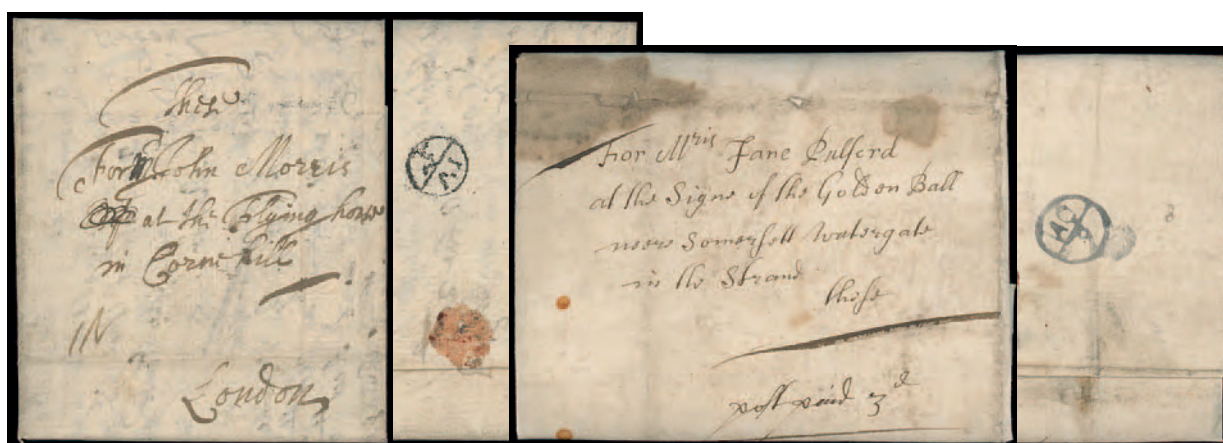 these
For Mr John Morris
at the Flying horse
in Corne hill
London
For Mris Jane Pulford
at the Signe of the Golden Ball
neere Somersett watergate
in the Strand
these
post paid 3d